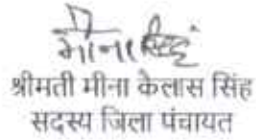 मीना सिंह
श्रीमती मीना केलास सिंह
सदस्य जिला पंचायत